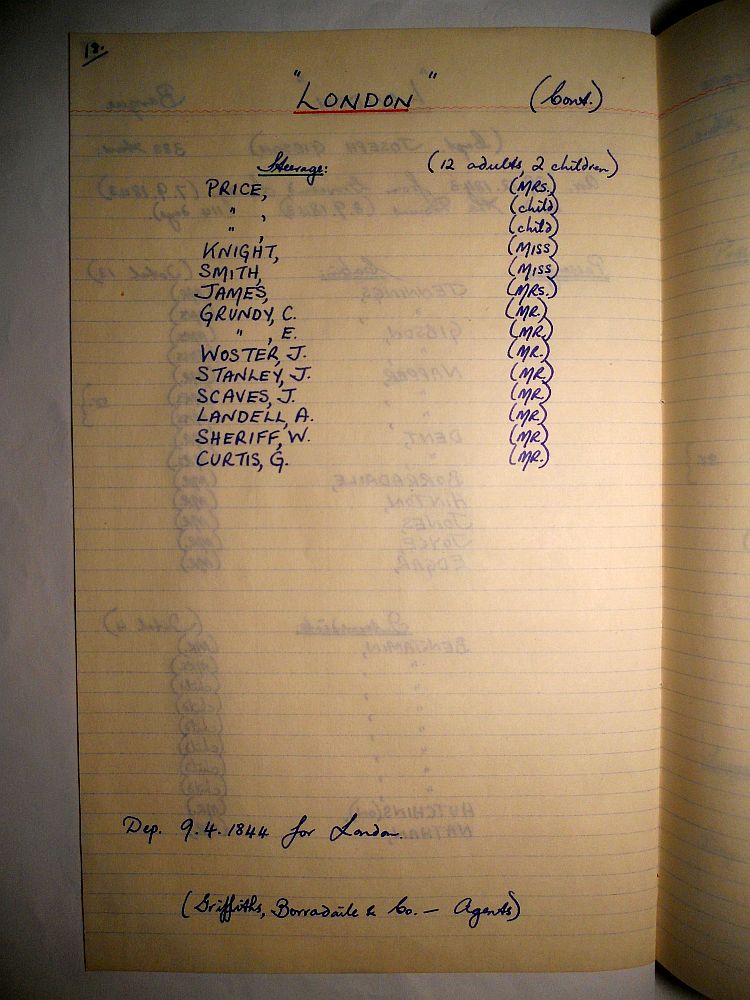 18.
"LONDON" (Cont.)
Steerage: (12 adults, 2 children)
PRICE, (MRS.)
" , (child)
" , (child)
KNIGHT, (MISS)
SMITH, (MISS)
JAMES, (MRS.)
GRUNDY, C. (MR.)
" , E. (MR.)
WOSTER, J. (MR.)
STANLEY, J. (MR.)
SCAVES, J. (MR.)
LANDELL, A. (MR.)
SHERIFF, W. (MR.)
CURTIS, G. (MR.)
Dep. 9.4.1844 for London.
(Griffiths, Borradaile & Co. — Agents)